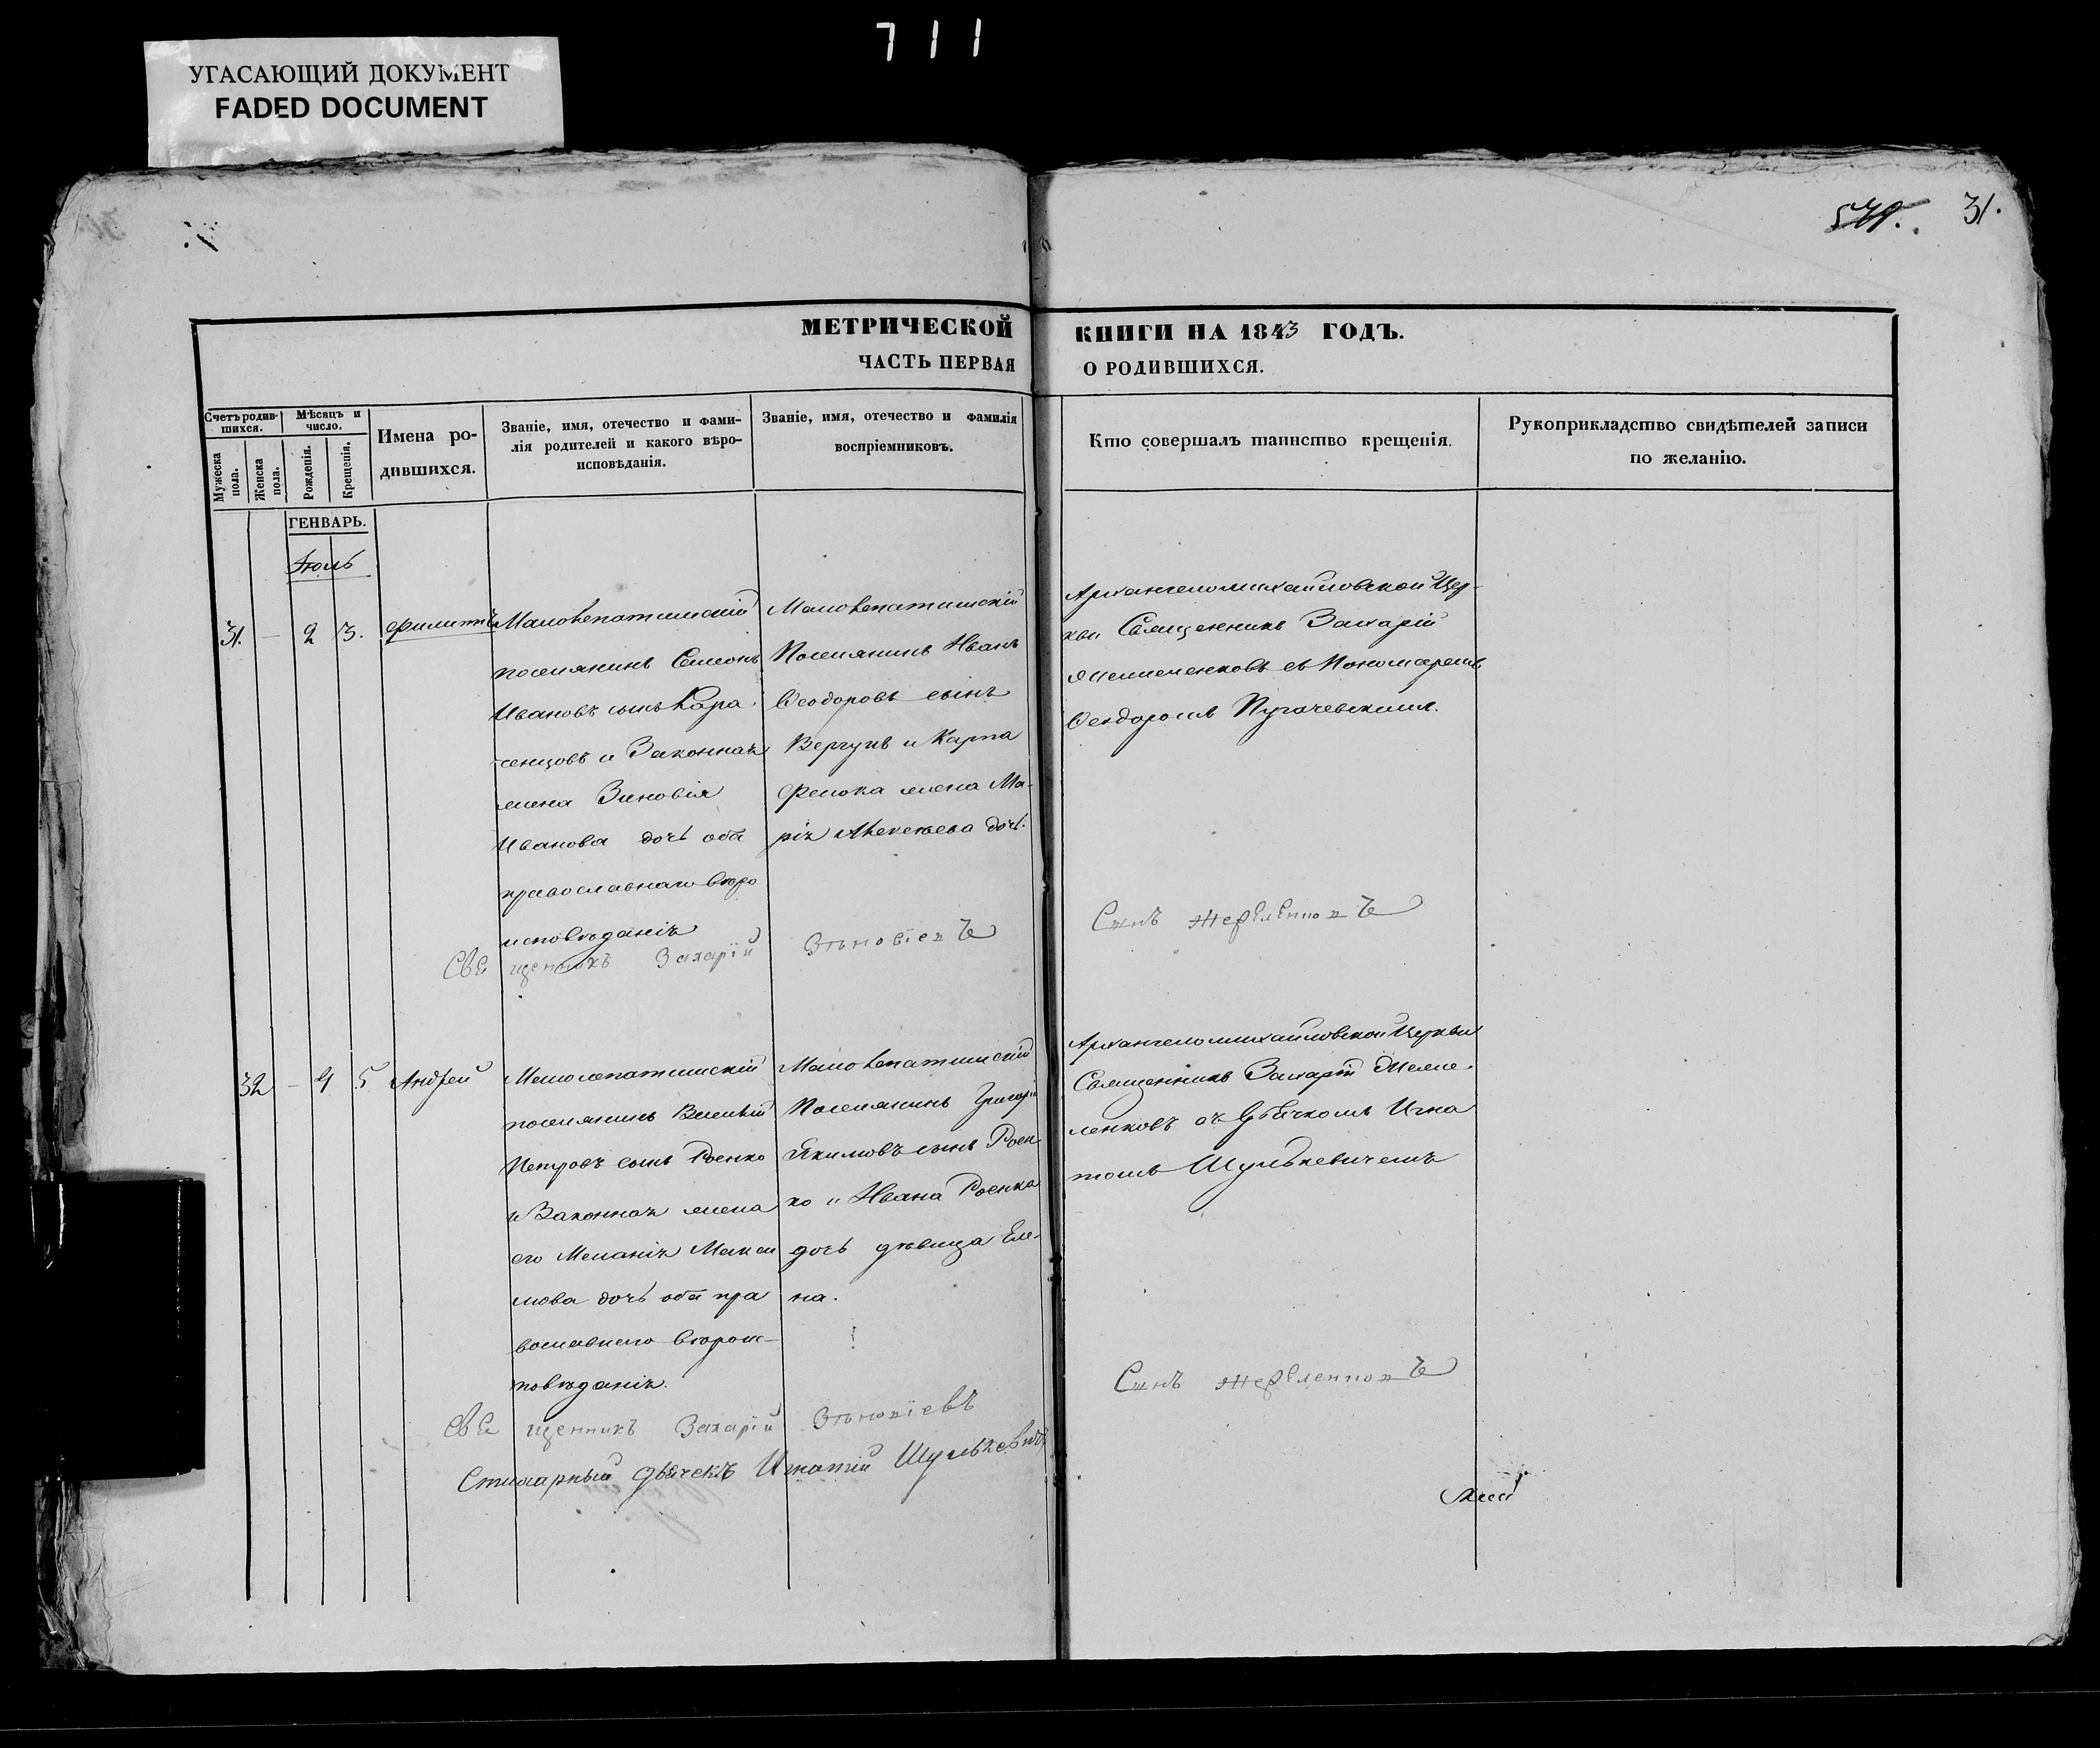 711
УГАСАЮЩИЙ ДОКУМЕНТ
FADED DOCUMENT
31.
МЕТРИЧЕСКОЙ КНИГИ НА 1843 ГОДЪ.
ЧАСТЬ ПЕРВАЯ О РОДИВШИХСЯ.
Счетъ родив-
шихся.
Мужеска
пола.
Женска
пола.
Мѣсяцъ и
число.
Рожденія.
Крещенія.
Имена ро-
дившихся.
Званіе, имя, отечество и фами-
лія родителей и какого вѣро-
исповѣданія.
Званіе, имя, отечество и фамилія
воспріемниковъ.
Кто совершалъ таинство крещенія.
Рукоприкладство свидѣтелей записи
по желанію.
ГЕНВАРЬ.
Іюль
31. – 2 3.
Филиппъ
поселянинъ Семенъ
Ивановъ сынъ Кара
сенцовъ и Законная
жена Зиновія
Ивановна дочь оба
православнаго вѣро
исповѣданія
Поселянинъ Иванъ
Ѳеодоровъ сынъ
Вергунъ и Карпа
жена Ма-
рія Алексѣева дочь.
Архангеломихайловской Цер-
кви Священникъ Захарій
съ Пономаремъ
Ѳеодоромъ Пугачевскимъ.
Захарій
32 – 4 5
Андрей
поселянинъ Василій
Петровъ сынъ Роенко
и Законная жена
его Меланія Макси
мова дочь оба пра
вославнаго вѣроис-
повѣданія.
Поселянинъ Григорій
Якимовъ сынъ Роен
ко и Ивана Роенка
дочь дѣвица Еле-
на.
Архангеломихайловской Церкви
Священникъ Захарій
съ Дьячкомъ Игна
томъ Шулькевичемъ
Захарій
дьячекъ Игнатій Шулькевичъ